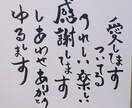 愛してます
ついてる
うれしい楽しい
感謝してます
しあわせありがとう
ゆるします